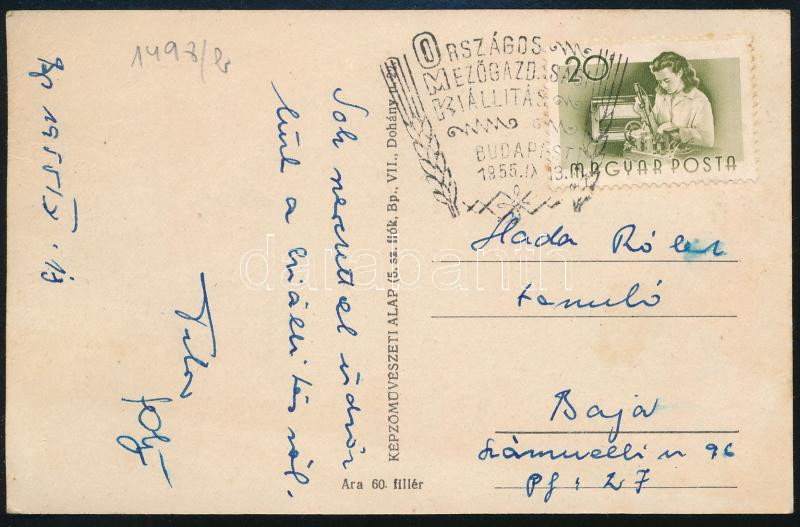 1498/
Bp 1955 IX. 13
Sok szeretettel üdvöz
lünk a kiállításról.
KÉPZŐMŰVÉSZETI ALAP (5. sz. fiók, Bp., VII., Dohány u. 22)
Ara 60. fillér
ORSZÁGOS
MEZŐGAZDASÁGI
KIÁLLITÁS
BUDAPEST
1955.IX 13.
20
MAGYAR POSTA
Hada
tanuló
Baja
u 96
Pf: 27
darabanth